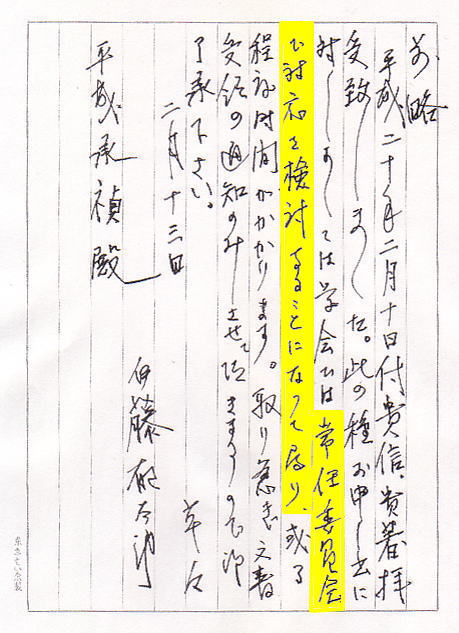 前略
平成二十年二月十日付貴信、貴著拝
受致しました。此の種お申し出に
対しましては学会では常任委員会
で対応を検討することになって居り、或る
程度時間がかかります。取り急ぎ文書
受領の通知のみさせて頂きますので御
了承下さい。
草々
二月十三日
伊藤
平成承禎殿